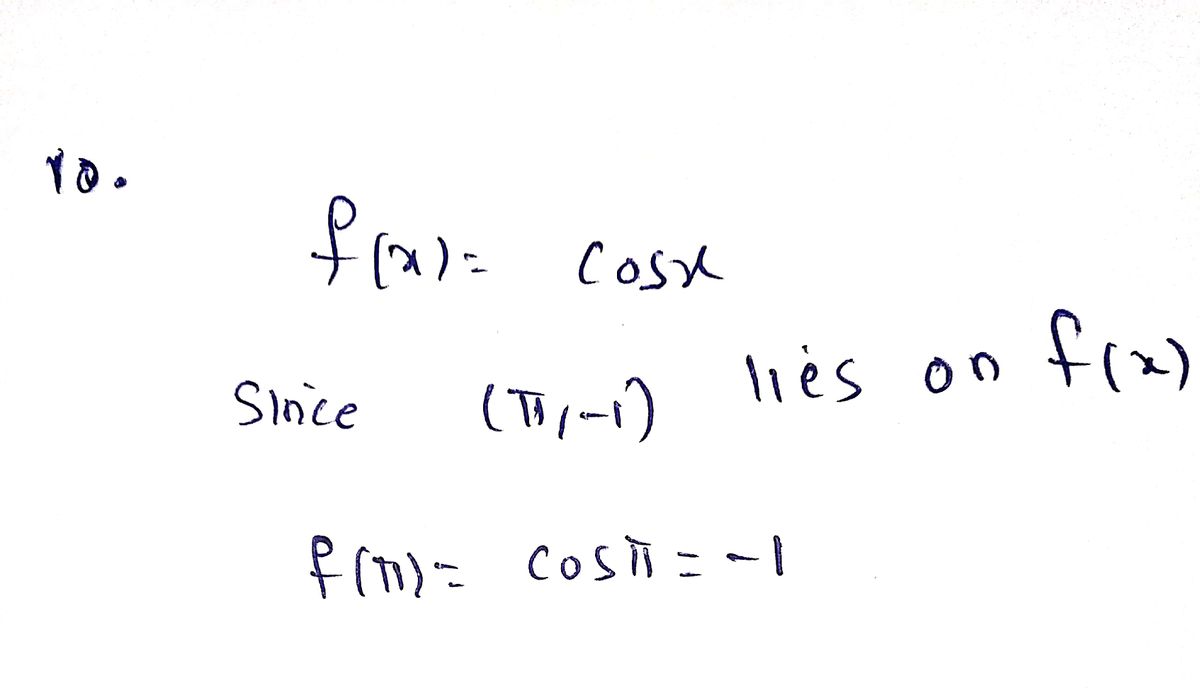 10.
f(x) = cosx
Since (π, -1) lies on f(x)
f(π) = cosπ = -1